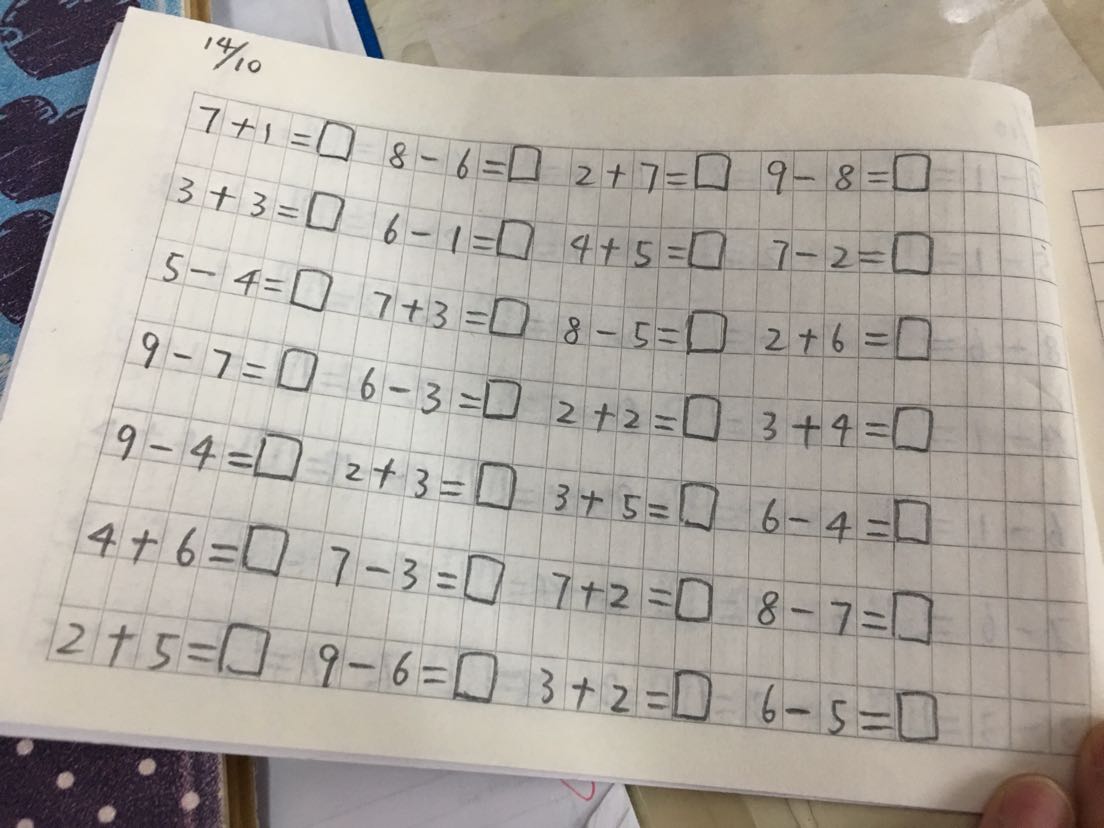 14/10
7+1=□ 8-6=□ 2+7=□ 9-8=□
3+3=□ 6-1=□ 4+5=□ 7-2=□
5-4=□ 7+3=□ 8-5=□ 2+6=□
9-7=□ 6-3=□ 2+2=□ 3+4=□
9-4=□ 2+3=□ 3+5=□ 6-4=□
4+6=□ 7-3=□ 7+2=□ 8-7=□
2+5=□ 9-6=□ 3+2=□ 6-5=□